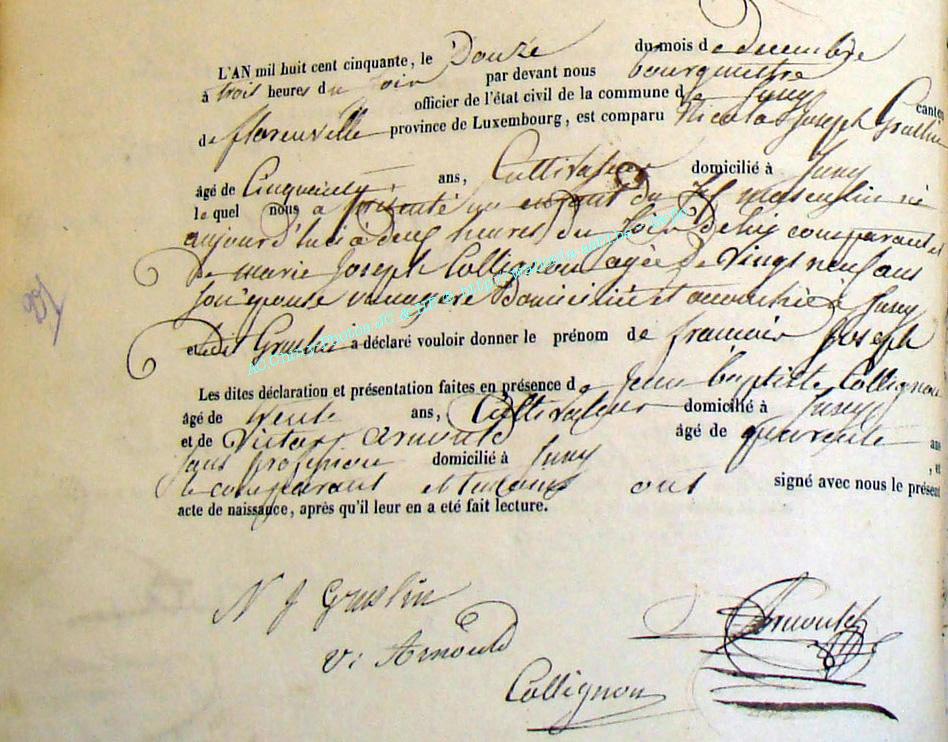 L'AN mil huit cent cinquante, le Douze du mois de decembre
à trois heures du soir par devant nous bourgmestre
officier de l'état civil de la commune de Juny canton
de florenville province de Luxembourg, est comparu Nicolas Joseph Graslin
âgé de Cinquante ans, Cultivateur domicilié à Juny
lequel nous a présenté un enfant du sexe masculin né
aujourd'hui à deux heures du soir De lui comparant et
De marie Joseph Collignon agée De vingt neuf ans
son épouse menagere Domiciliée et accouchée à Juny
et du Graslin a déclaré vouloir donner le prénom de francois joseph
Les dites déclaration et présentation faites en présence de Jean baptiste Collignon
âgé de trente ans, Cultivateur domicilié à Juny
et de Victor arnould âgé de quarante ans
sans profession domicilié à Juny , et
le comparant et temoins ont signé avec nous le présent
acte de naissance, après qu'il leur en a été fait lecture.
N J Graslin
V: Arnould
Collignon